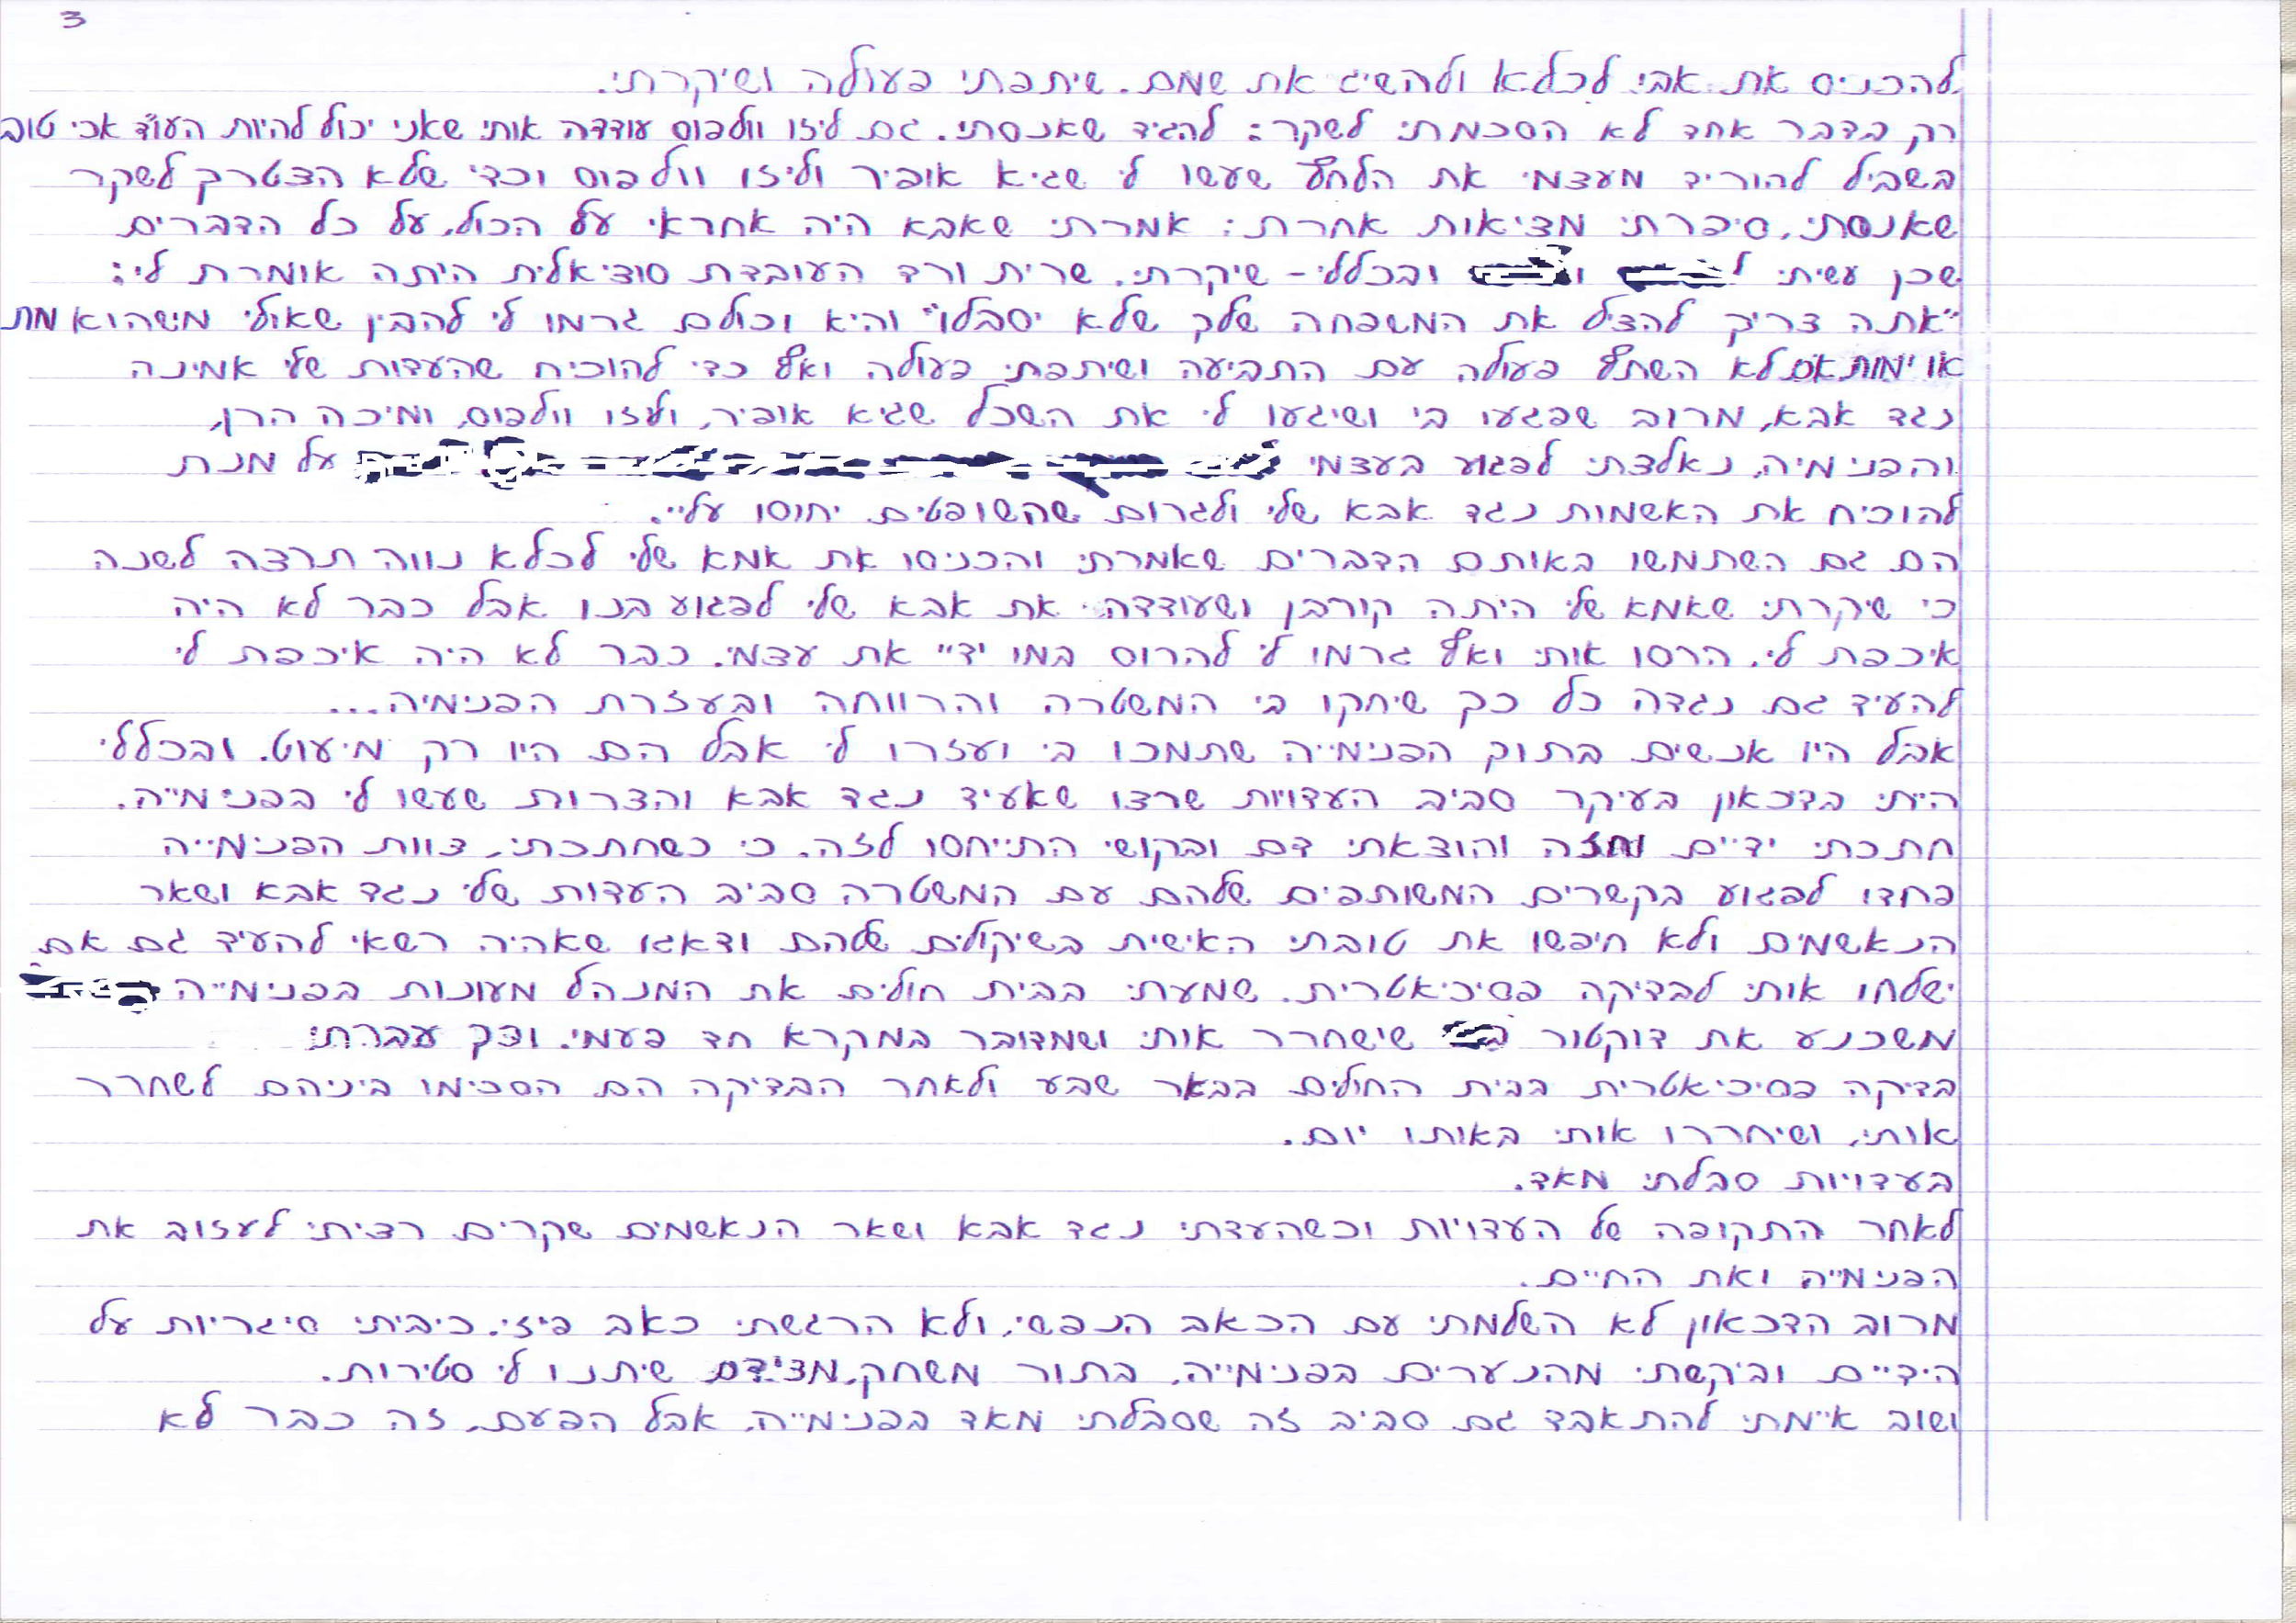 3
להכניס את אבי לכלא ולהשיג את שמם. שיתפתי פעולה ושיקרתי.
רק בדבר אחד לא הסכמתי לשקר: להגיד שאנסתי. גם ליזו וולפוס עודדה אותי שאני יכול להיות העד הכי טוב
בשביל להוריד מעצמי את הלחץ שעשו לי שגיא אופיר וליזו וולפוס וכדי שלא הצטרך לשקר
שאנסתי, סיפרתי מציאות אחרת: אמרתי שאבא היה אחראי על הכול, על כל הדברים
שכן עשיתי ל ו ובכללי - שיקרתי. שרית ורד העובדת סוציאלית היתה אומרת לי:
"אתה צריך להציל את המשפחה שלך שלא יסבלו" והיא וכולם גרמו לי להבין שאולי מישהוא מת
או ימות אם לא השתף פעולה עם התביעה ושיתפתי פעולה ואף כדי להוכיח שהעדות שלי אמינה
נגד אבא, מרוב שפגעו בי ושיגעו לי את השכל שגיא אופיר, ולזו וולפוס, ומיכה הרן,
והפנימיה, נאלצתי לפגוע בעצמי על מנת
להוכיח את האשמות נגד אבא שלי ולגרום שהשופטים יחוסו עליי.
הם גם השתמשו באותם הדברים שאמרתי והכניסו את אמא שלי לכלא נווה תרצה לשנה
כי שיקרתי שאמא שלי היתה קורבן ושעודדה את אבא שלי לפגוע בנו אבל כבר לא היה
איכפת לי. הרסו אותי ואף גרמו לי להרוס במו ידיי את עצמי. כבר לא היה איכפת לי
להעיד גם נגדה כל כך שיחקו בי המשטרה והרווחה ובעזרת הפנימיה...
אבל היו אנשים בתוך הפנימייה שתמכו בי ועזרו לי אבל הם היו רק מיעוט. ובכללי
הייתי בדכאון בעיקר סביב העדויות שרצו שאעיד נגד אבא והצרות שעשו לי בפנימייה.
חתכתי ידיים וחזה והוצאתי דם ובקושי התייחסו לזה. כי כשחתכתי, צוות הפנימייה
פחדו לפגוע בקשרים המשותפים שלהם עם המשטרה סביב העדות שלי נגד אבא ושאר
הנאשמים ולא חיפשו את טובתי האישית בשיקולים שלהם ודאגו שאהיה רשאי להעיד גם אם
ישלחו אותי לבדיקה פסיכיאטרית. שמעתי בבית חולים את המנהל מעונות בפנימייה
משכנע את דוקטור שישחרר אותי ושמדובר במקרא חד פעמי. וכך עברתי
בדיקה פסיכיאטרית בבית החולים בבאר שבע ולאחר הבדיקה הם הסכימו ביניהם לשחרר
אותי, ושיחררו אותי באותו יום.
בעדויות סבלתי מאד.
לאחר התקופה של העדויות וכשהעדתי נגד אבא ושאר הנאשמים שקרים רציתי לעזוב את
הפנימייה ואת החיים.
מרוב הדכאון לא השלמתי עם הכאב הנפשי, ולא הרגשתי כאב פיזי. כיביתי סיגריות על
הידיים וביקשתי מהנערים בפנימייה, בתור משחק, מצידם שיתנו לי סטירות.
ושוב איימתי להתאבד גם סביב זה שסבלתי מאד בפנימייה, אבל הפעם, זה כבר לא